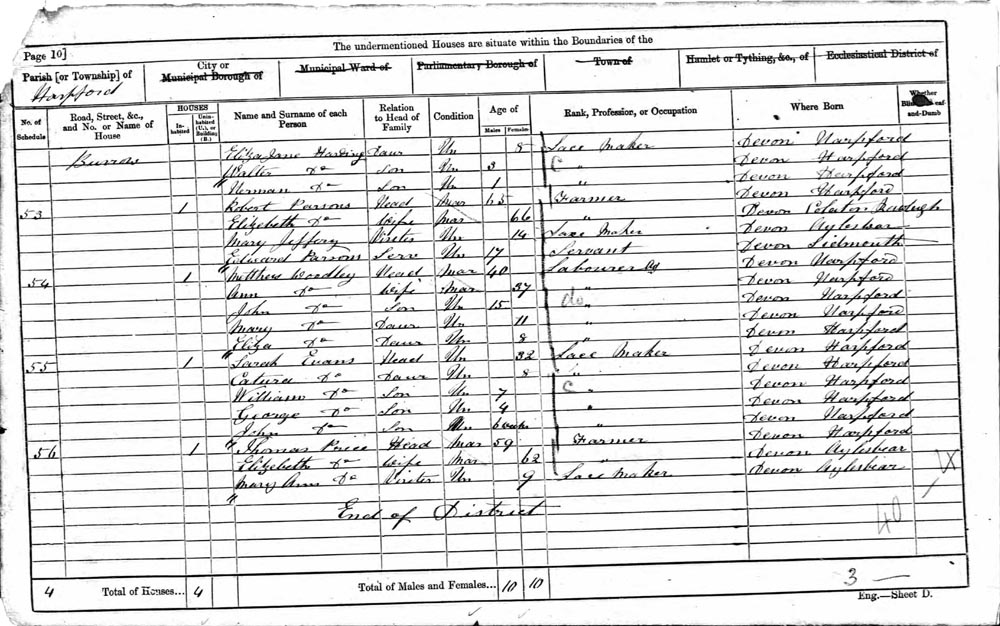 Page 10]
The undermentioned Houses are situate within the Boundaries of the
Parish [or Township] of
City or Municipal Borough of
Municipal Ward of
Parliamentary Borough of
Town of
Hamlet or Tything, &c., of
Ecclesiastical District of
Harpford
No. of Schedule
Road, Street, &c., and No. or Name of House
HOUSES
Inhabited
Uninhabited (U.), or Building (B.)
Name and Surname of each Person
Relation to Head of Family
Condition
Age of
Males
Females
Rank, Profession, or Occupation
Where Born
Whether
and-Dumb
Burrow Eliza Jane Harding Daur Un 8 Lace Maker Devon Harpford
Walter Do Son Un 3 C " Devon Harpford
" Herman Do Son Un 1 " Devon Harpford
53 1 Robert Parsons Head Mar 65 Farmer Devon Harpford
Elizabeth Do Wife Mar 66 " Devon Colaton Rawleigh
Mary Jeffery Visiter Un 14 Lace Maker Devon Aylesbear
Edward Parsons Serv Un 17 Servant Devon Sidmouth
54 1 " Matthew Woodley Head Mar 40 Labourer Ag Devon Harpford
Ann Do Wife Mar 37 " Devon Harpford
John Do Son Un 15 do " Devon Harpford
Mary Do Daur Un 11 " Devon Harpford
Eliza Do Daur Un 8 Devon Harpford
55 1 " Sarah Evans Head Un 32 Lace Maker Devon Harpford
Do Daur Un 8 " Devon Harpford
William Do Son Un 7 C " Devon Harpford
George Do Son Un 4 " Devon Harpford
John Do Son Un 6 " Devon Harpford
56 1 " Thomas Price Head Mar 59 Farmer Devon Harpford
Elizabeth Do Wife Mar 62 " Devon Aylesbear
Mary Ann Do Visiter Un 9 Lace Maker Devon Aylesbear
"
End of District
40
4 Total of Houses... 4 Total of Males and Females... 10 10
3 —
Eng.—Sheet D.